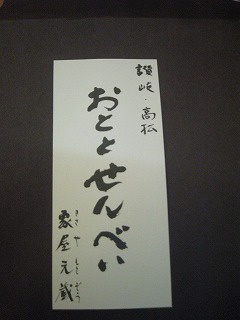 讃岐・高松
おととせんべい
象屋元蔵
きさやもとぞう